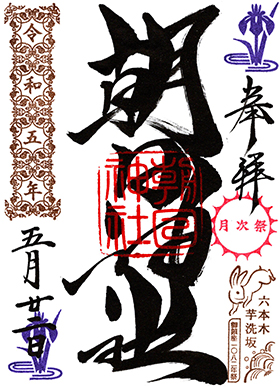 奉拝
月次祭
六本木
芋洗坂
朝日神社
朝日
神社
令和五年
五月廿二日